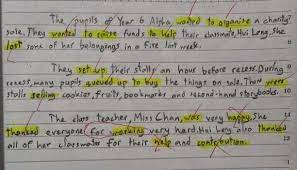 The pupils of Year 6 Alpha, wanted to organise a charity
sale. They wanted to raise funds to help their classmate, Hui Leng. She
lost some of her belongings in a fire last week.
They set up their stalls an hour before recess. During
recess, many pupils queued up to buy the things on sale. There were
stalls selling cookies, fruits, bookmarks and second-hand storybooks.
The class teacher, Miss Chan, was very happy. She
thanked everyone for working very hard. Hui Leng also thanked
all of her classmates for their help and contribution.